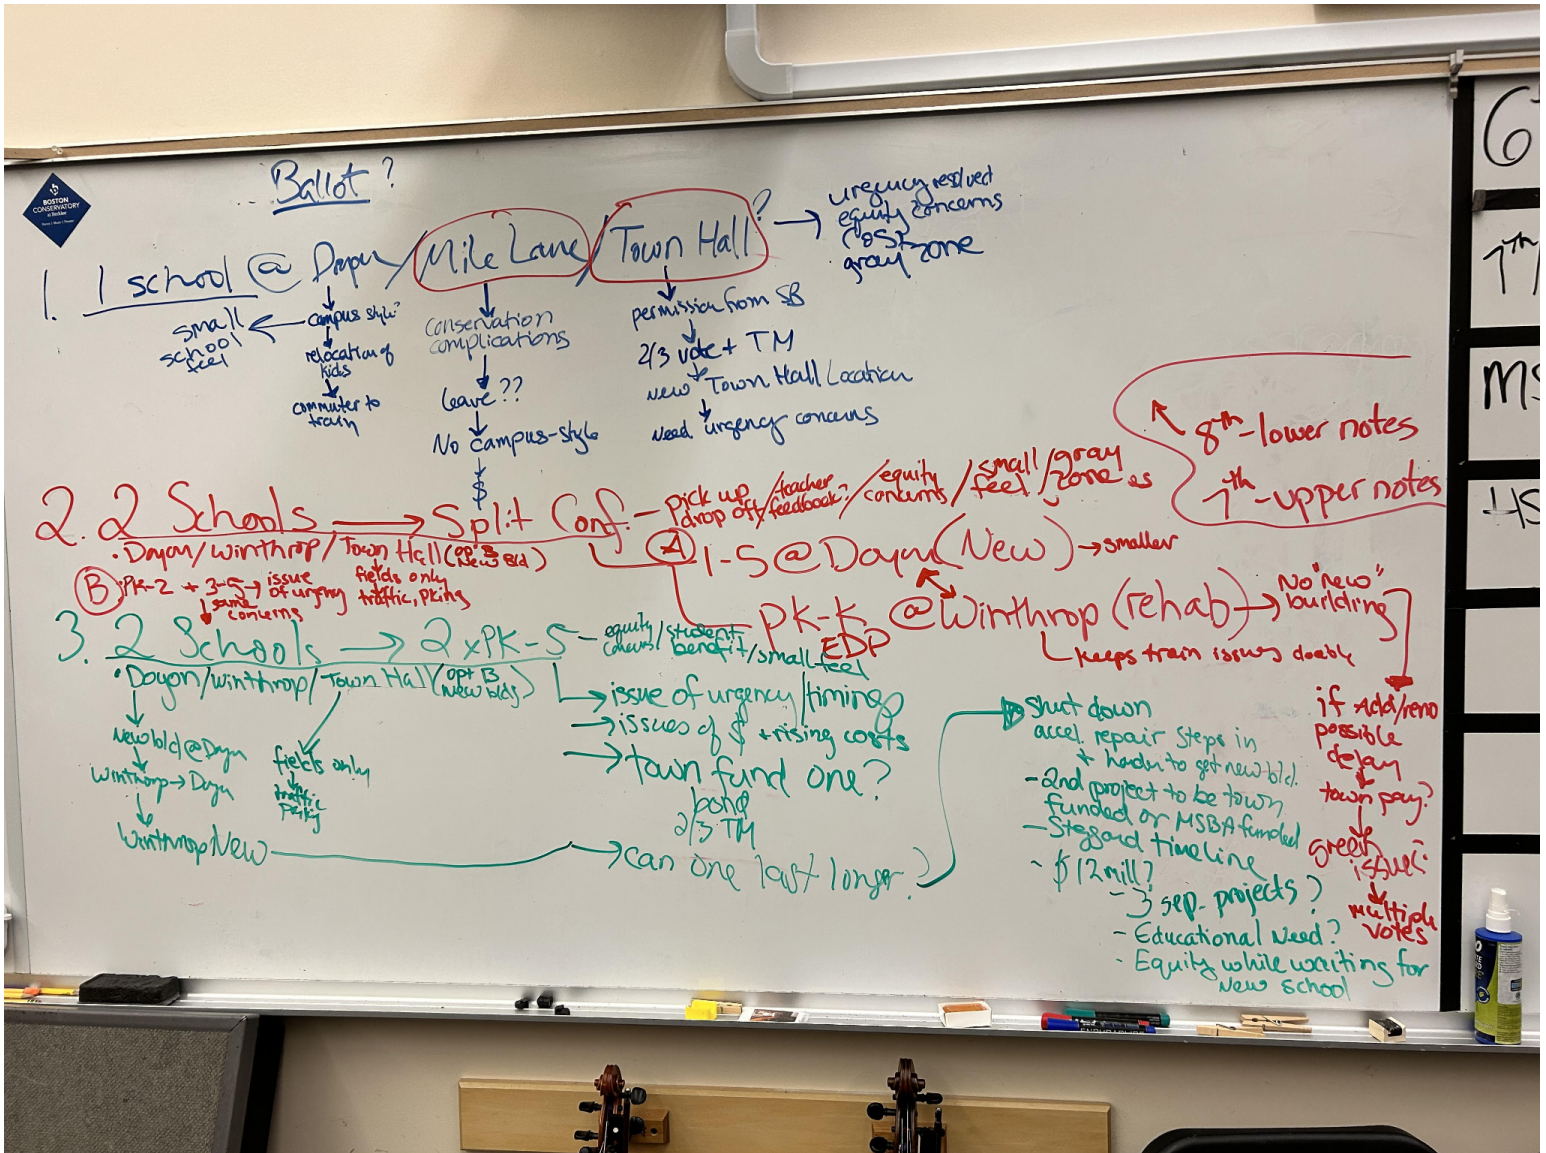 BOSTON
CONSERVATORY
at Berklee
Ballot?
1. 1 school @ Doyon / Mile Lane / Town Hall? →
urgency resolved
equity concerns
cost
gray zone
small
school
feel
campus style?
relocation of
kids
commuter to
train
conservation
complications
leave??
No campus-style
$
permission from SB
2/3 vote + TM
new Town Hall Location
need urgency concerns
8th-lower notes
7th-upper notes
2. 2 Schools → Split Conf - pick up drop off / teacher feedback? / equity concerns / small feel / gray zone
• Doyon/Winthrop/Town Hall (opt B New Bld)
fields only
traffic, pking
(B) PK-2 + 3-5 → issue of urgency
same
concerns
(A) 1-5 @ Doyon (New) → smaller
PK-K @ Winthrop (rehab) → No "new" building
EDP
keeps train issues doable
if Add/reno
possible
delay
town pay?
green
issue?
multiple
votes
3. 2 Schools → 2xPK-5 - equity concerns / student benefit / small feel
• Doyon/Winthrop/Town Hall (opt B New blds)
New bld @ Doyon
Winthrop → Doyon
Winthrop New
fields only
traffic
pking
→ issue of urgency/timing
→ issues of $ + rising costs
→ town fund one?
bond
2/3 TM
→ can one last longer?
shut down
accel. repair steps in
+ harder to get new bld.
- 2nd project to be town
funded or MSBA funded
- Staggard timeline
- $12mill?
- 3 sep. projects?
- Educational Need?
- Equity while waiting for
New school
6
7th
MS
HS